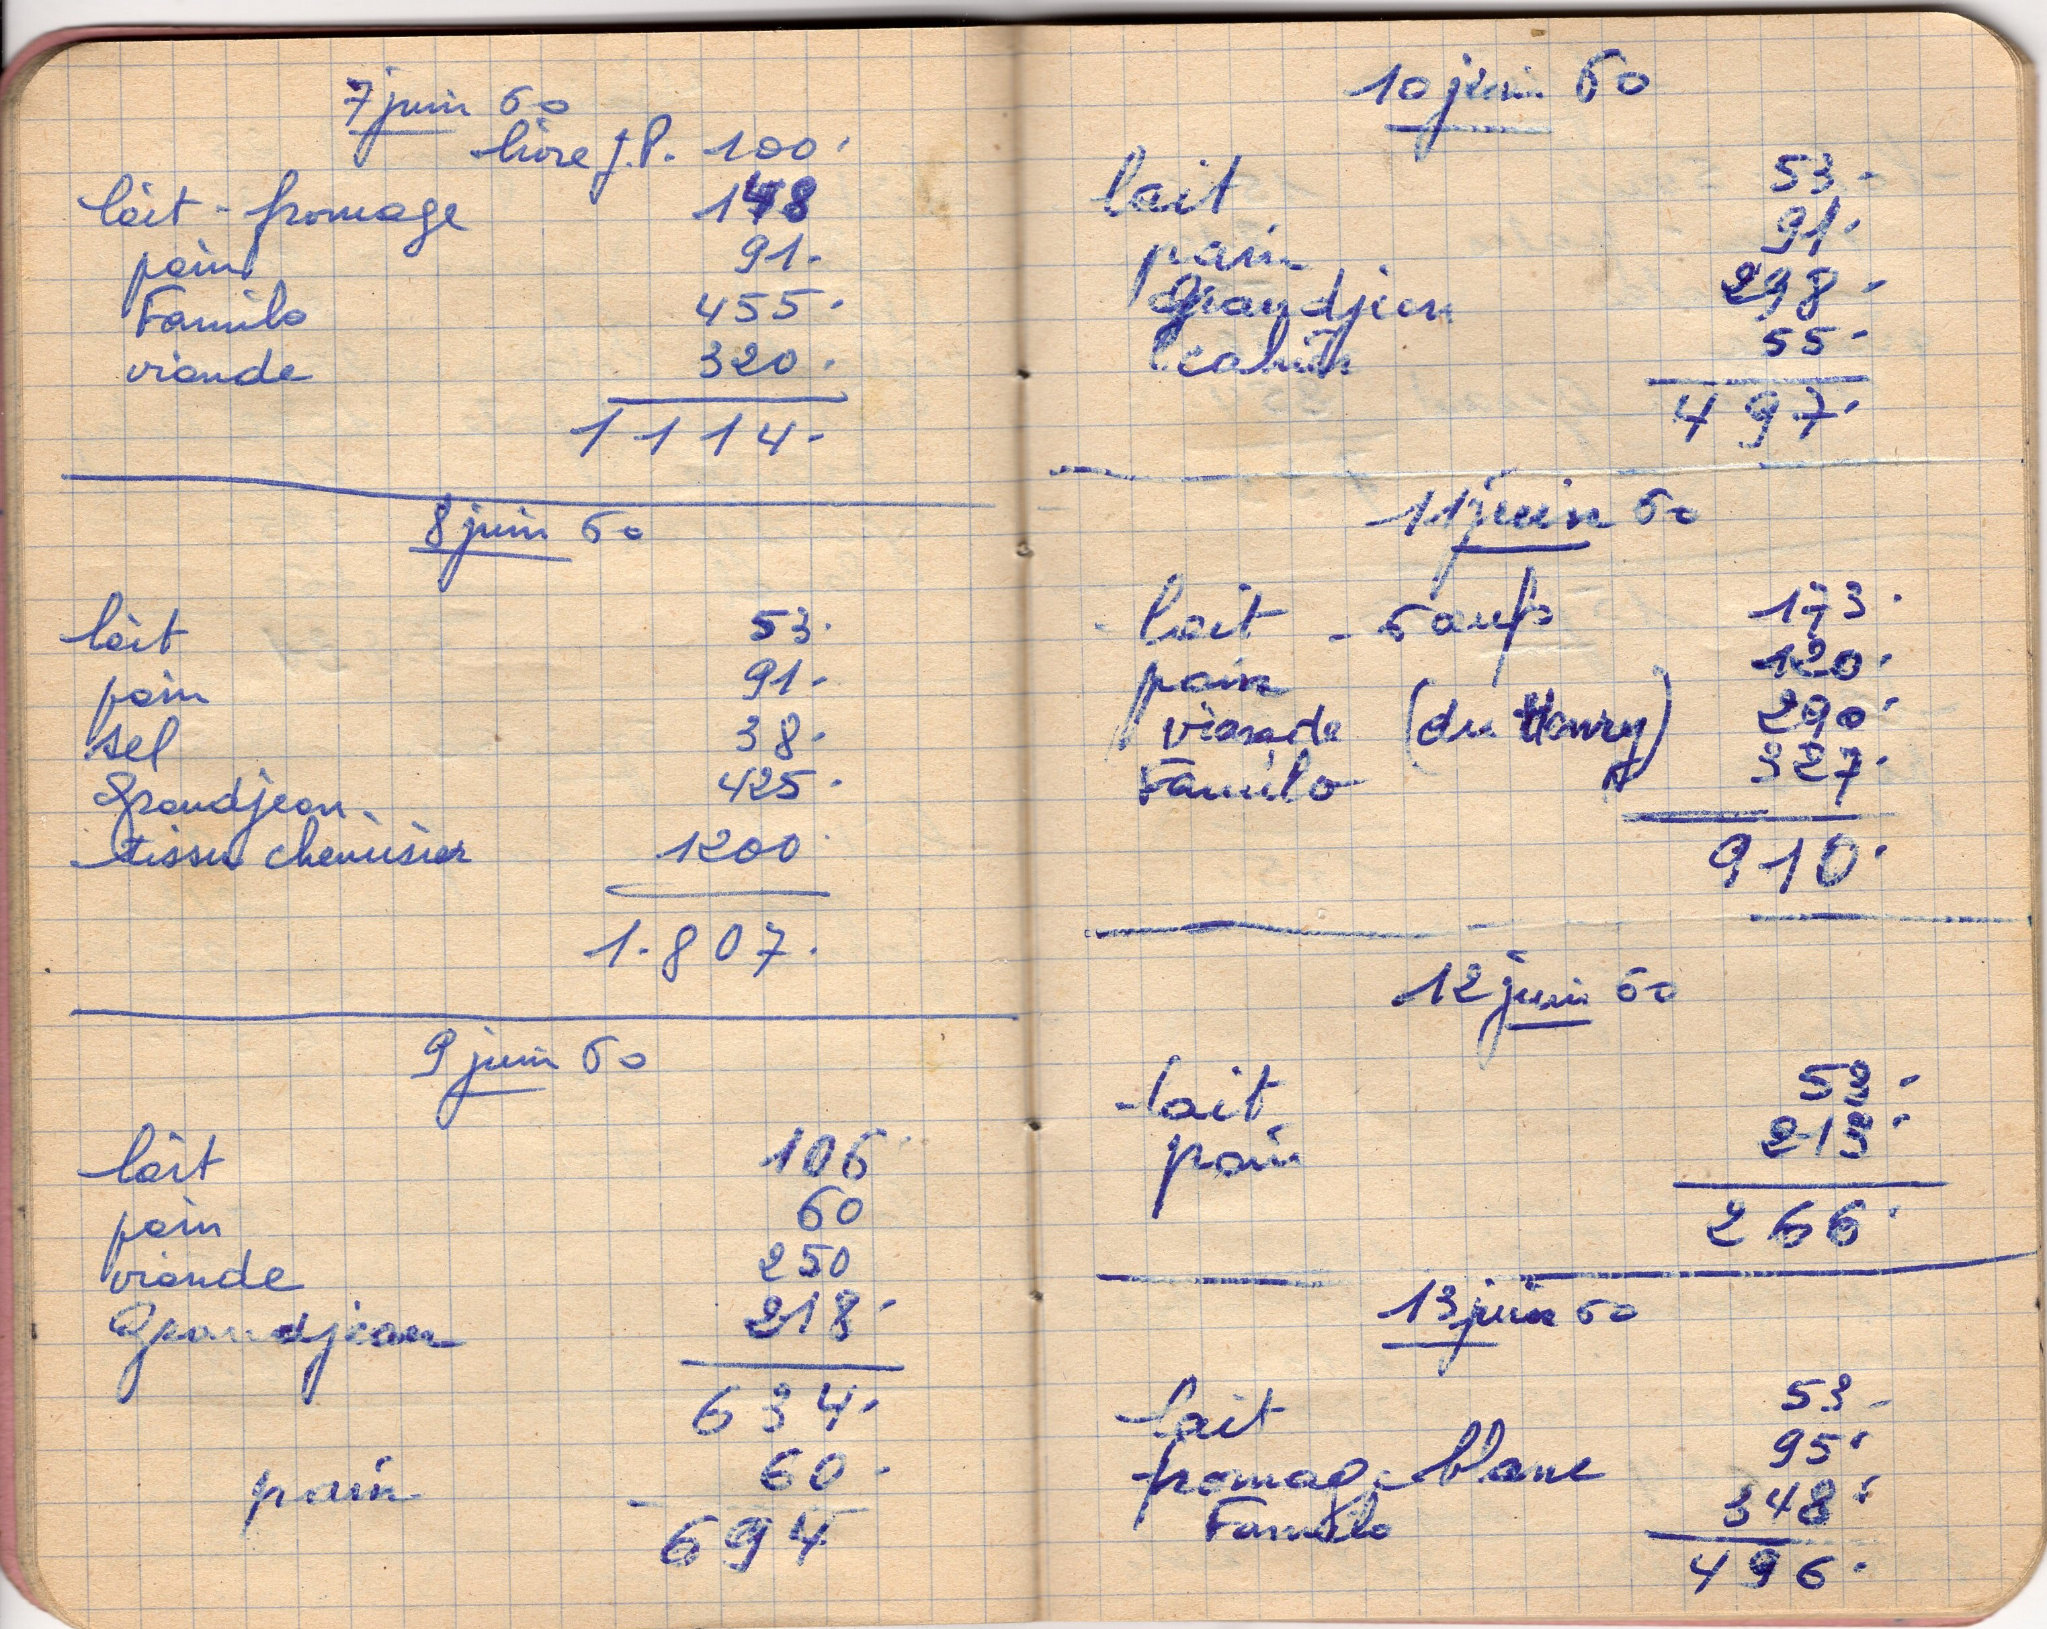 7 juin 60
livre J.P. 100.
lait - fromage 148
pain 91.
Familo 455.
viande 320.
1114.
8 juin 60
lait 53.
pain 91.
sel 38.
Grandjean 425.
tissu chemisier 1200
1.807.
9 juin 60
lait 106
pain 60
viande 250
Grandjean 218.
634.
pain 60.
694
10 juin 60
lait 53.
pain 91.
Grandjean 298.
cahier 55.
497.
11 juin 60
lait - 173.
pain 120.
viande (du Henry) 290.
Familo 327.
910.
12 juin 60
lait 53.
pain 213.
266.
13 juin 60
lait 53.
fromage blanc 95.
Familo 348.
496.